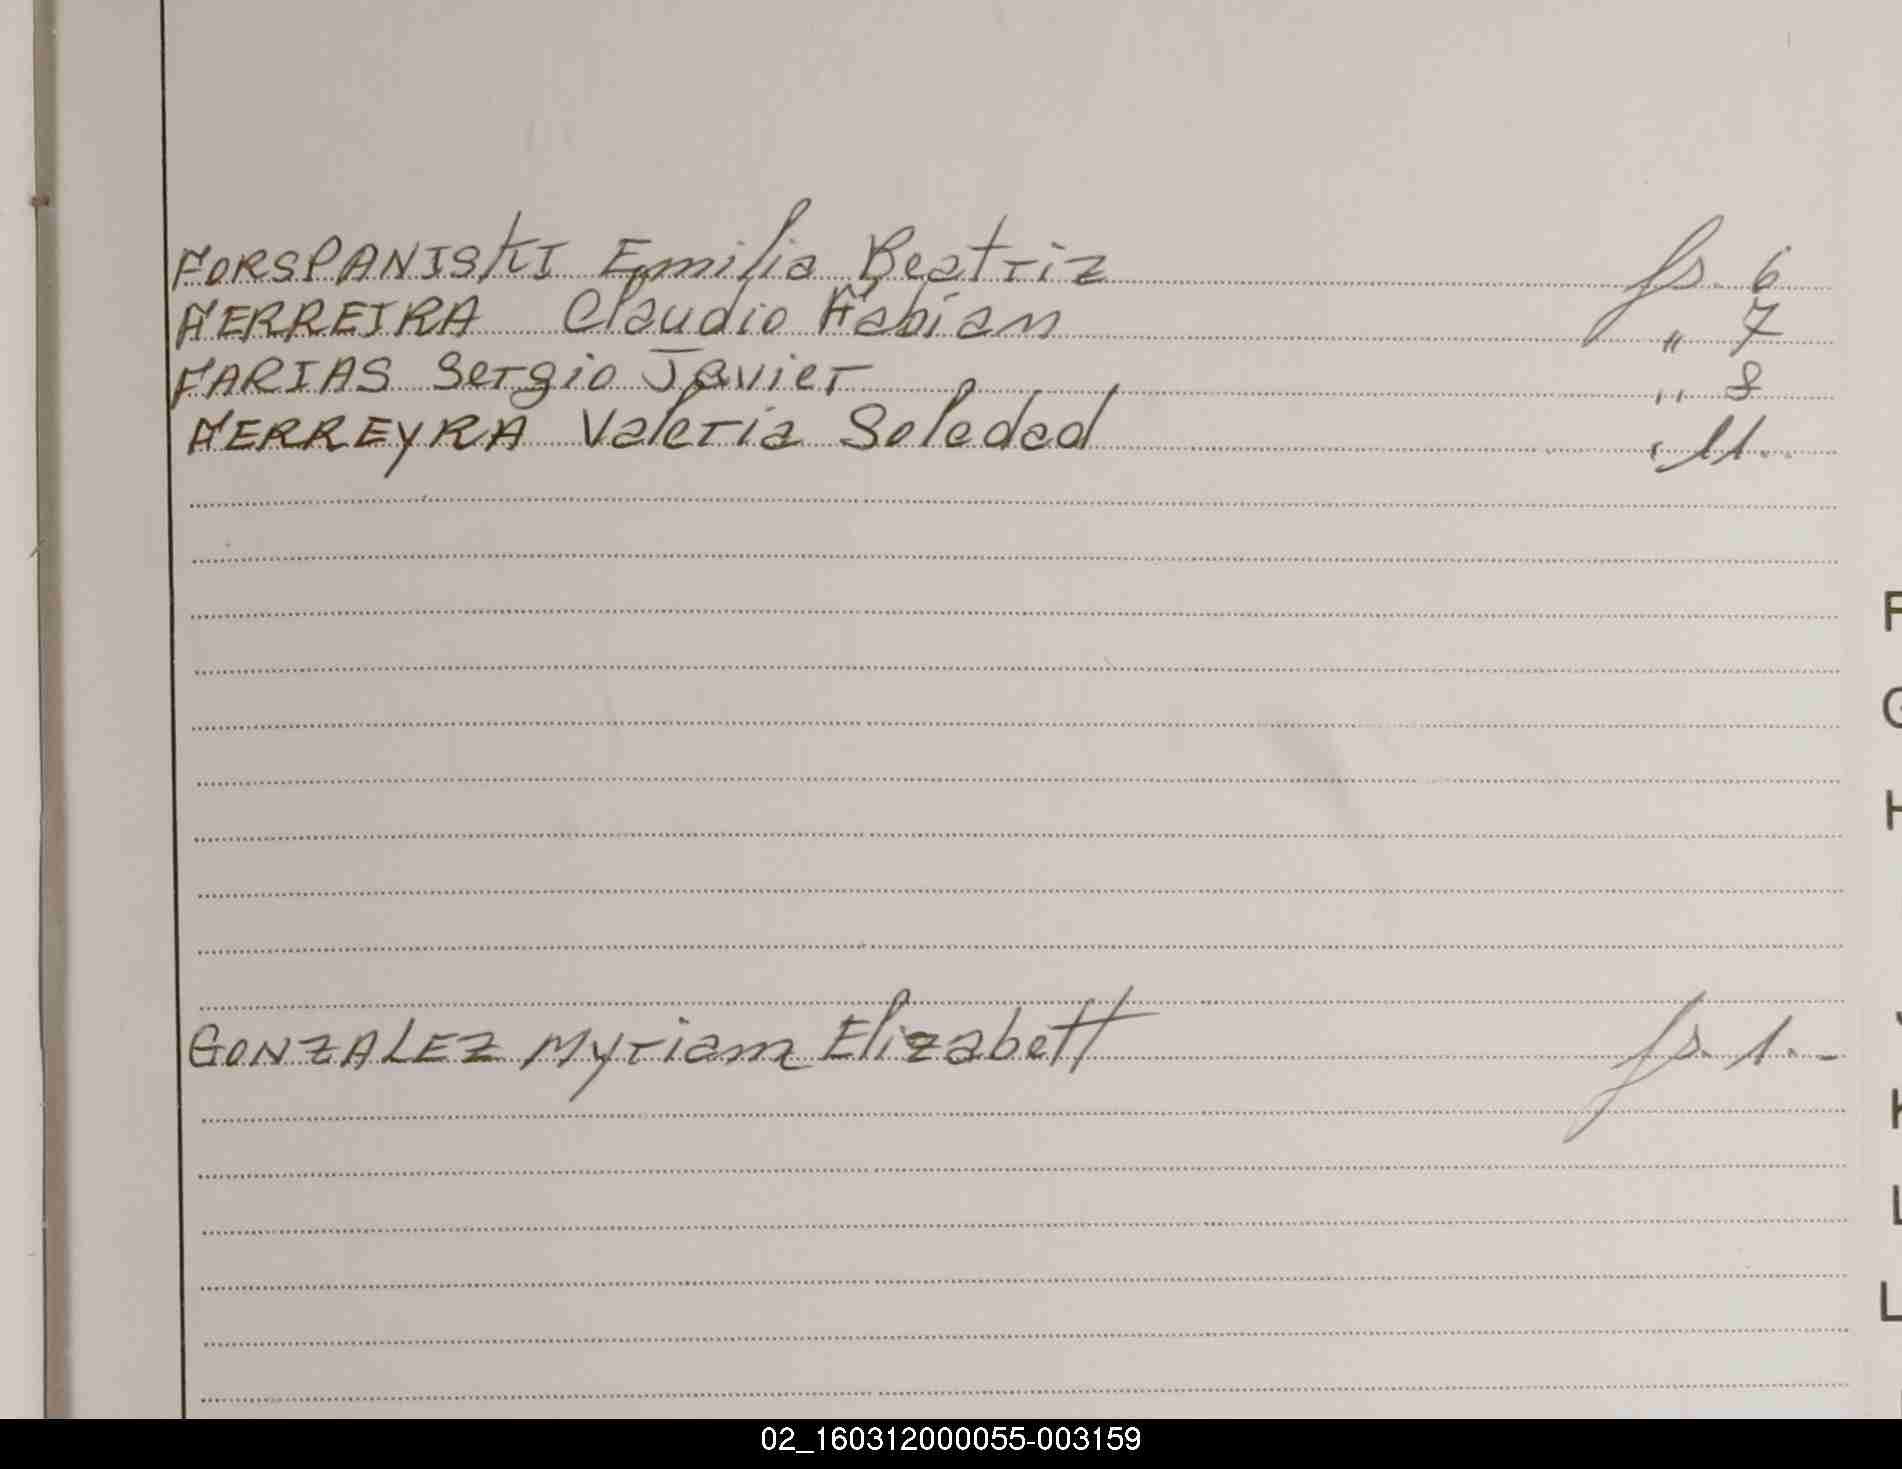 FORSPANISKI Emilia Beatriz fs. 6
FERREIRA Claudio Fabian " 7
FARIAS Sergio Javier " 8
FERREYRA Valeria Soledad " 11.
F
G
H
GONZALEZ Myriam Elizabett fs. 1.-
J
K
L
L
02_160312000055-003159